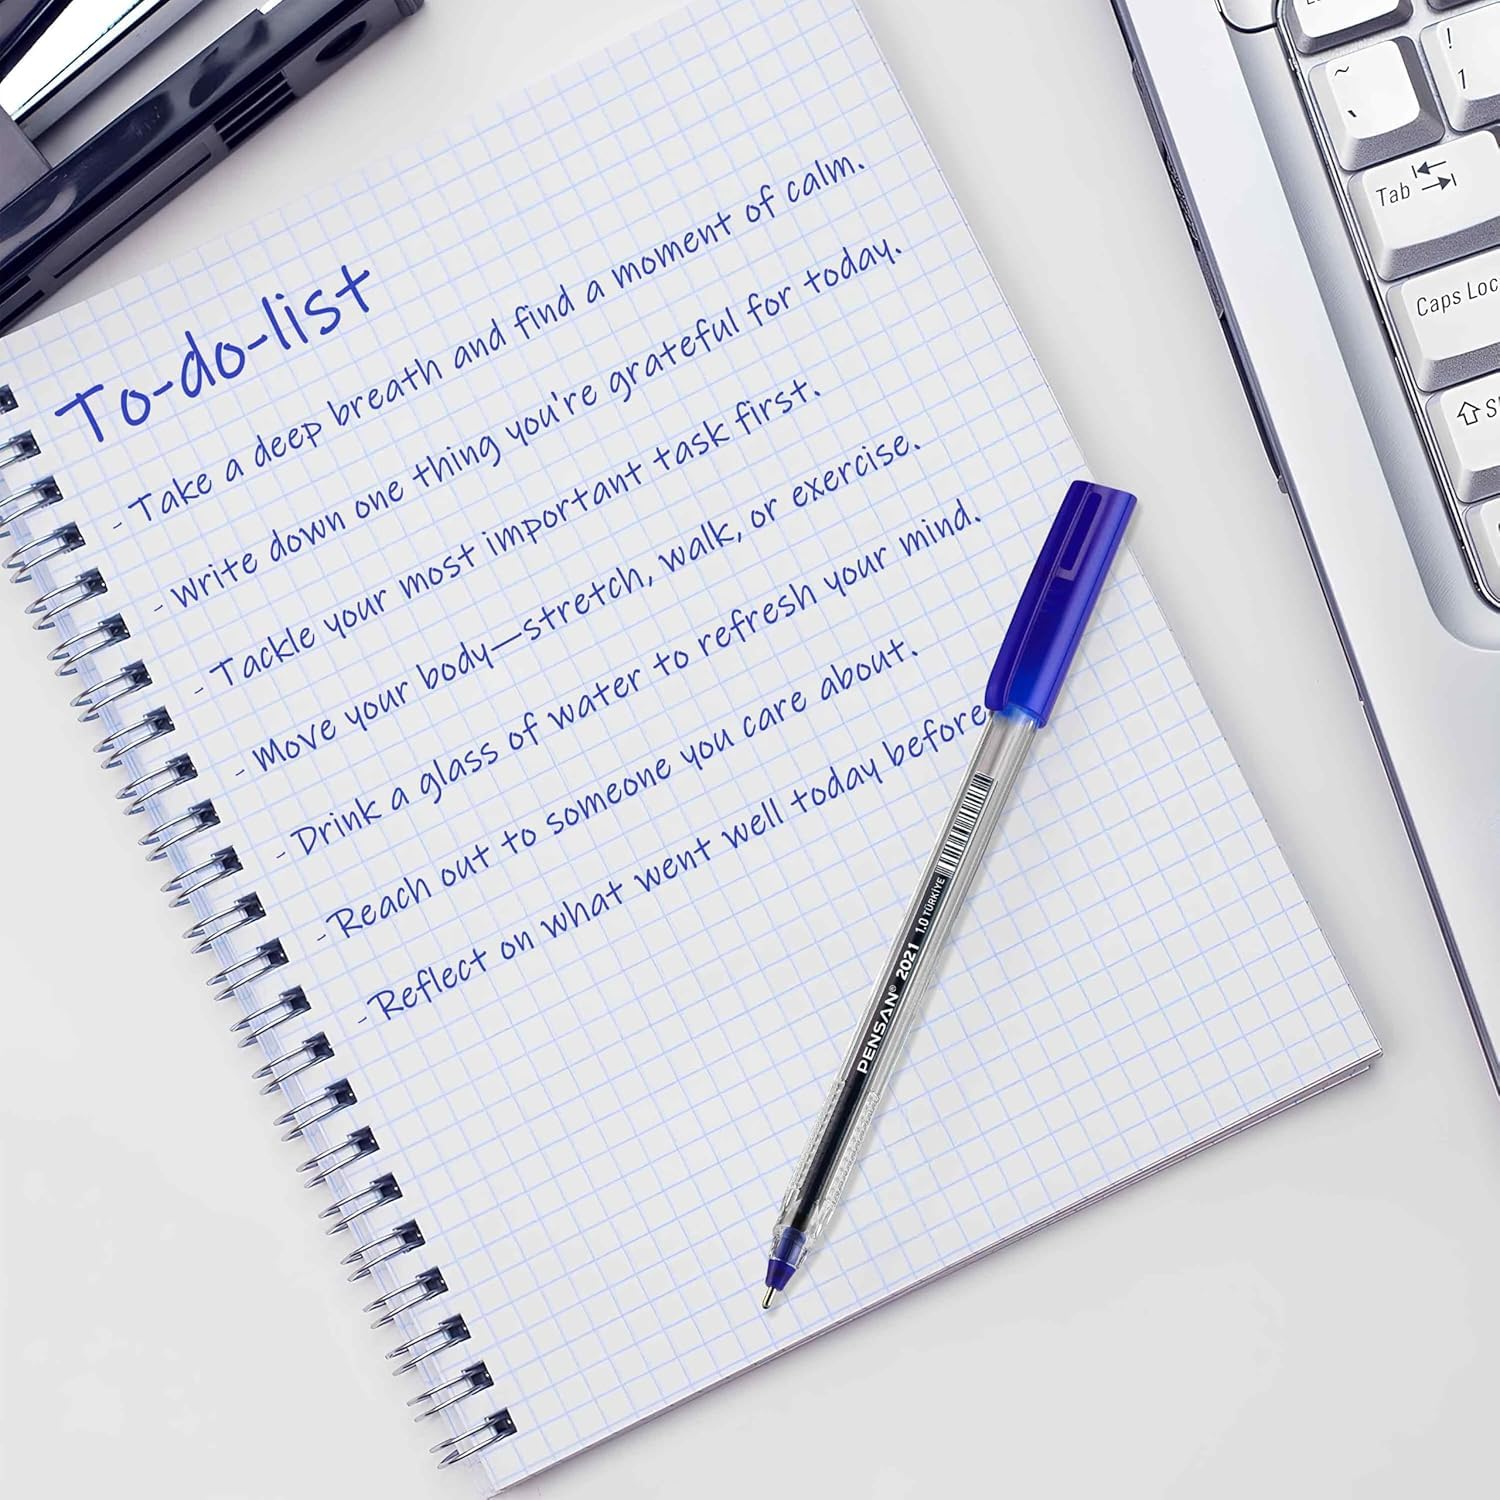 To-do-list
- Take a deep breath and find a moment of calm.
- Write down one thing you're grateful for today.
- Tackle your most important task first.
- Move your body—stretch, walk, or exercise.
- Drink a glass of water to refresh your mind.
- Reach out to someone you care about.
- Reflect on what went well today before
PENSAN® 2021 1.0 TÜRKİYE
~ `
! 1
Tab
Caps Loc